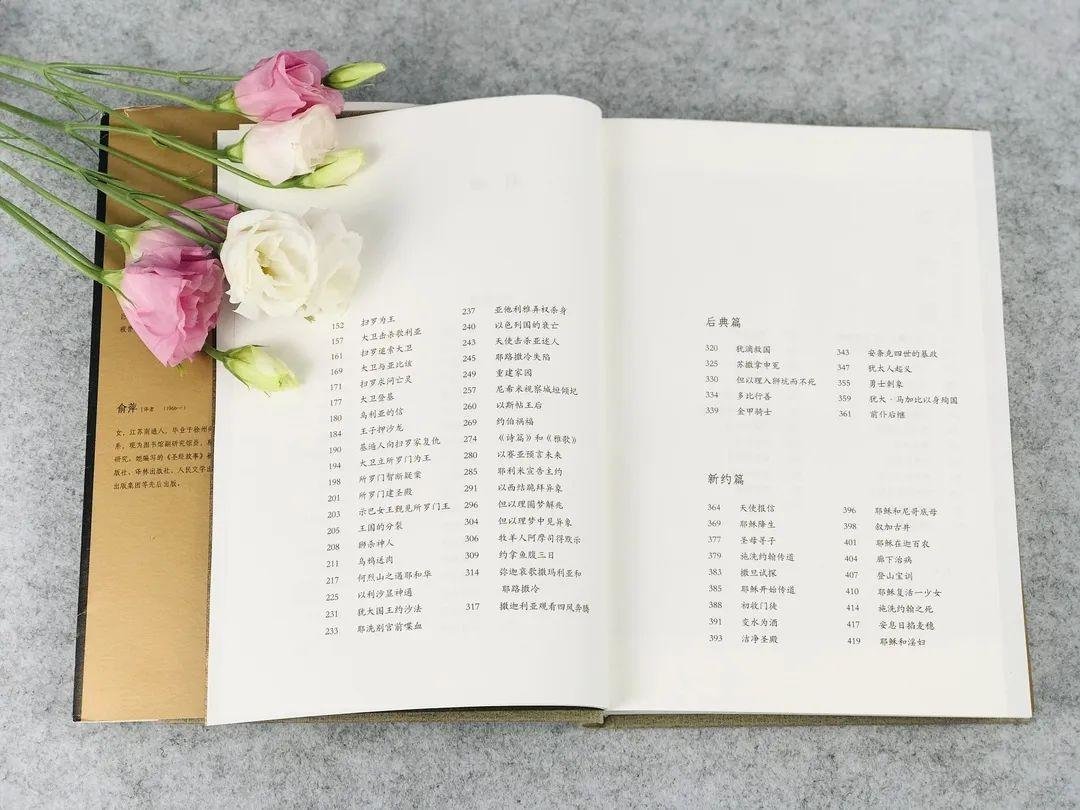 俞萍 译者 (1966—)
女，江苏南通人，毕业于徐州
系，现为图书馆副研究馆员，
研究。她编写的《圣经故事》
版社、译林出版社、人民文学出
出版集团等先后出版。
152 扫罗为王
157 大卫击杀歌利亚
161 扫罗追索大卫
169 大卫与亚比该
171 扫罗求问亡灵
177 大卫登基
180 乌利亚的信
184 王子押沙龙
190 基遍人向扫罗家复仇
194 大卫立所罗门为王
198 所罗门智断疑案
201 所罗门建圣殿
203 示巴女王觐见所罗门王
205 王国的分裂
208 狮杀神人
211 乌鸦送肉
217 何烈山之遇耶和华
225 以利沙显神通
231 犹大国王约沙法
233 耶洗别宫前喋血
237 亚他利雅弄权杀身
240 以色列国的衰亡
243 天使击杀亚述人
245 耶路撒冷失陷
249 重建家园
257 尼希米视察城垣倾圮
260 以斯帖王后
269 约伯祸福
274 《诗篇》和《雅歌》
280 以赛亚预言未来
285 耶利米宣告主约
291 以西结跪拜异象
296 但以理圆梦解兆
304 但以理梦中见异象
306 牧羊人阿摩司得欢乐
309 约拿鱼腹三日
314 弥迦哀歌撒玛利亚和
耶路撒冷
317 撒迦利亚观看四风奔腾
后典篇
320 犹滴救国
325 苏撒拿申冤
330 但以理入狮坑而不死
334 多比行善
339 金甲骑士
343 安条克四世的暴政
347 犹太人起义
355 勇士刺象
359 犹大·马加比以身殉国
361 前仆后继
新约篇
364 天使报信
369 耶稣降生
377 圣母寻子
379 施洗约翰传道
383 撒旦试探
385 耶稣开始传道
388 初收门徒
391 变水为酒
393 洁净圣殿
396 耶稣和尼哥底母
398 叙加古井
401 耶稣在迦百农
404 廊下治病
407 登山宝训
410 耶稣复活一少女
414 施洗约翰之死
417 安息日掐麦穗
419 耶稣和淫妇